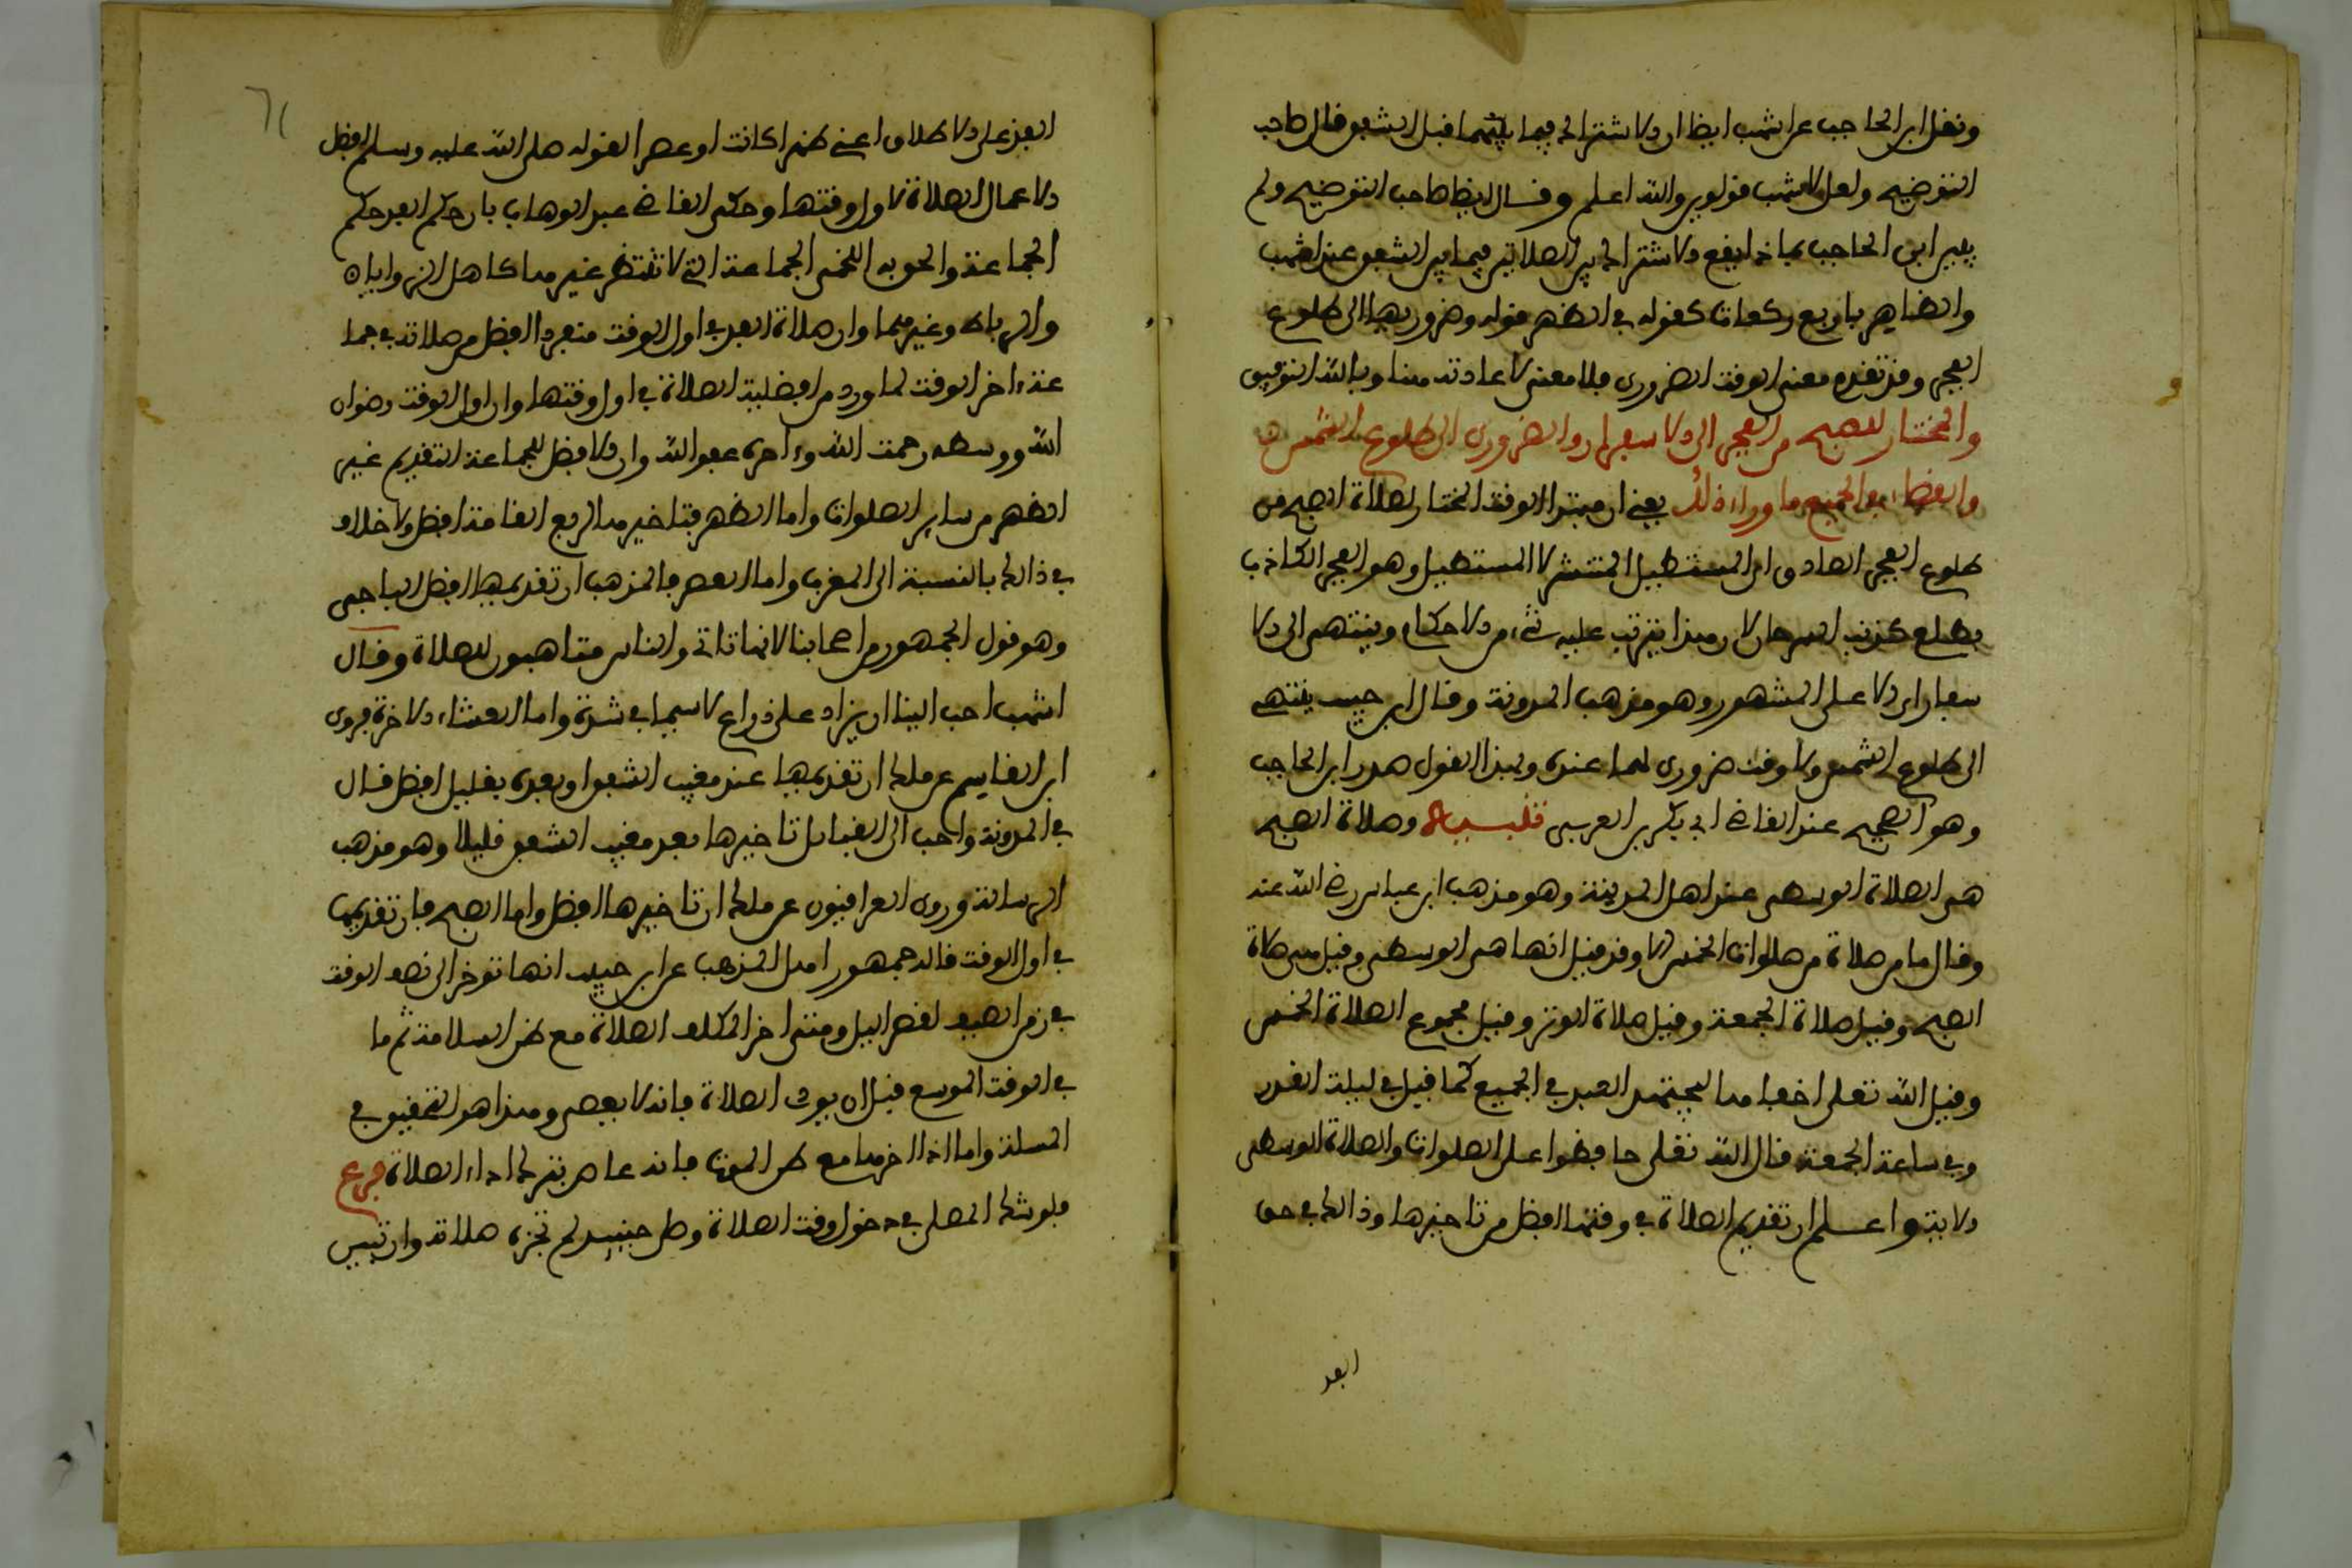 ونقل ابن الحاجب عن اشهب ايضا ان الاشتراك فيما بينهما قبل الشفق قال صاحب
التوضيح ولعل لاشهب قولين والله اعلم وقال ايضا صاحب التوضيح ولم
يبين ابن الحاجب بماذا يقع الاشتراك بين الصلاتين فيما بين الشفق عند اشهب
والظاهر باربع ركعات كقوله في الظهر قوله وضروريها الى طلوع
الفجر وقد تقدم معنى الوقت الضروري فلا معنى لاعادته هنا وبالله التوفيق
والمختار للصبح من الفجر الى الاسفار والضروري الى طلوع الشمس
والقضاء في الجميع ما وراء ذلك يعني ان مبتدا الوقت المختار لصلاة الصبح من
طلوع الفجر الصادق اي المستطير المنتشر لا المستطيل وهو الفجر الكاذب
يطلع كذنب السرحان لان هذا لا يترتب عليه شيء من الاحكام وينتهي الى الا
سفار الاعلى المشهور وهو مذهب المدونة وقال ابن حبيب ينتهي
الى طلوع الشمس ولا وقت ضروري لها عنده وبهذا القول صدر ابن الحاجب
وهو الصحيح عند القاضي ابي بكر بن العربي تنبيه وصلاة الصبح
هي الصلاة الوسطى عند اهل المدينة وهو مذهب ابن عباس رضي الله عنه
وقال ما من صلاة من صلوات الخمس الا وقد قيل انها هي الوسطى وقيل هي صلاة
الصبح وقيل صلاة الجمعة وقيل صلاة الوتر وقيل مجموع الصلاة الخمس
وقيل الله تعلى اخفاها ليجتهد العبد في الجميع كما قيل في ليلة القدر
وفي ساعة الجمعة قال الله تعلى حافظوا على الصلوات والصلاة الوسطى
الاية واعلم ان تقديم الصلاة في وقتها افضل من تاخيرها وذالك في حق
الفذ
الفذ على الاطلاق اعني ظهرا كانت او عصرا لقوله صلى الله عليه وسلم افضل
الاعمال الصلاة لاول وقتها وحكى القاضي عبد الوهاب بان حكم الفذ حكم
الجماعة والحق به اللخمي الجماعة التي لا تنتظر غيرها كاهل الزوايا
والرباط وغيرهما وان صلاة الفذ في اول الوقت منفردا افضل من صلاته في جما
عة اخر الوقت لما ورد من افضلية الصلاة في اول وقتها وان اول الوقت رضوان
الله ووسطه رحمت الله واخره عفو الله وان الافضل للجماعة التقديم غير
الظهر من ساير الصلوات واما الظهر فتاخيرها لربع القامة افضل ولا خلاف
في ذالك بالنسبة الى المغرب واما العصر فالمذهب ان تقديمها افضل الباجي
وهو قول الجمهور من اصحابنا لانها تاتي والناس متاهبون للصلاة وقال
اشهب احب الينا ان يزاد على ذراع لا سيما في شدة واما العشاء الاخرة فروى
ابن القاسم عن ملك ان تقديمها عند مغيب الشفق او بعده بقليل افضل قال
في المدونة واحب الى القبائل تاخيرها بعد مغيب الشفق قليلا وهو مذهب
الرسالة وروى العراقيون عن ملك ان تاخيرها افضل واما الصبح فان تقديمها
في اول الوقت قاله جمهور اهل المذهب عن ابن حبيب انها توخر الى نصف الوقت
في زمن الصيف لقصر اليل ومتى اخر المكلف الصلاة مع ظن السلامة ثم مات
في الوقت الموسع قبل ان يوقع الصلاة فانه لا يعصى وهذا هو التحقيق في
المسلة واما اذا اخرها مع ظن الموت فانه عاص بترك اداء الصلاة فرع
فلو شك المصلي في دخول وقت الصلاة وصلى حينيذ لم تجزه صلاته وان تبين